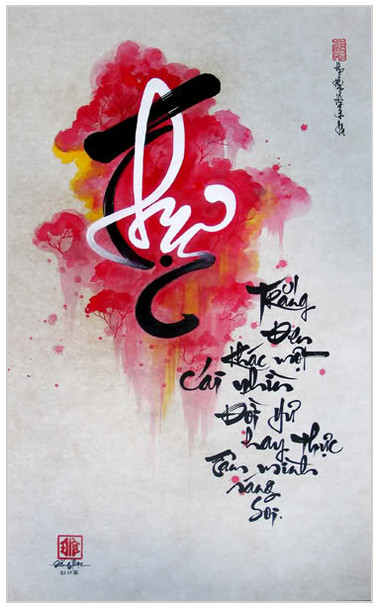 Thực
Trắng
Đen
khác một
Cái nhìn
Đời hư
hay Thực
Tâm mình
sáng
Soi.